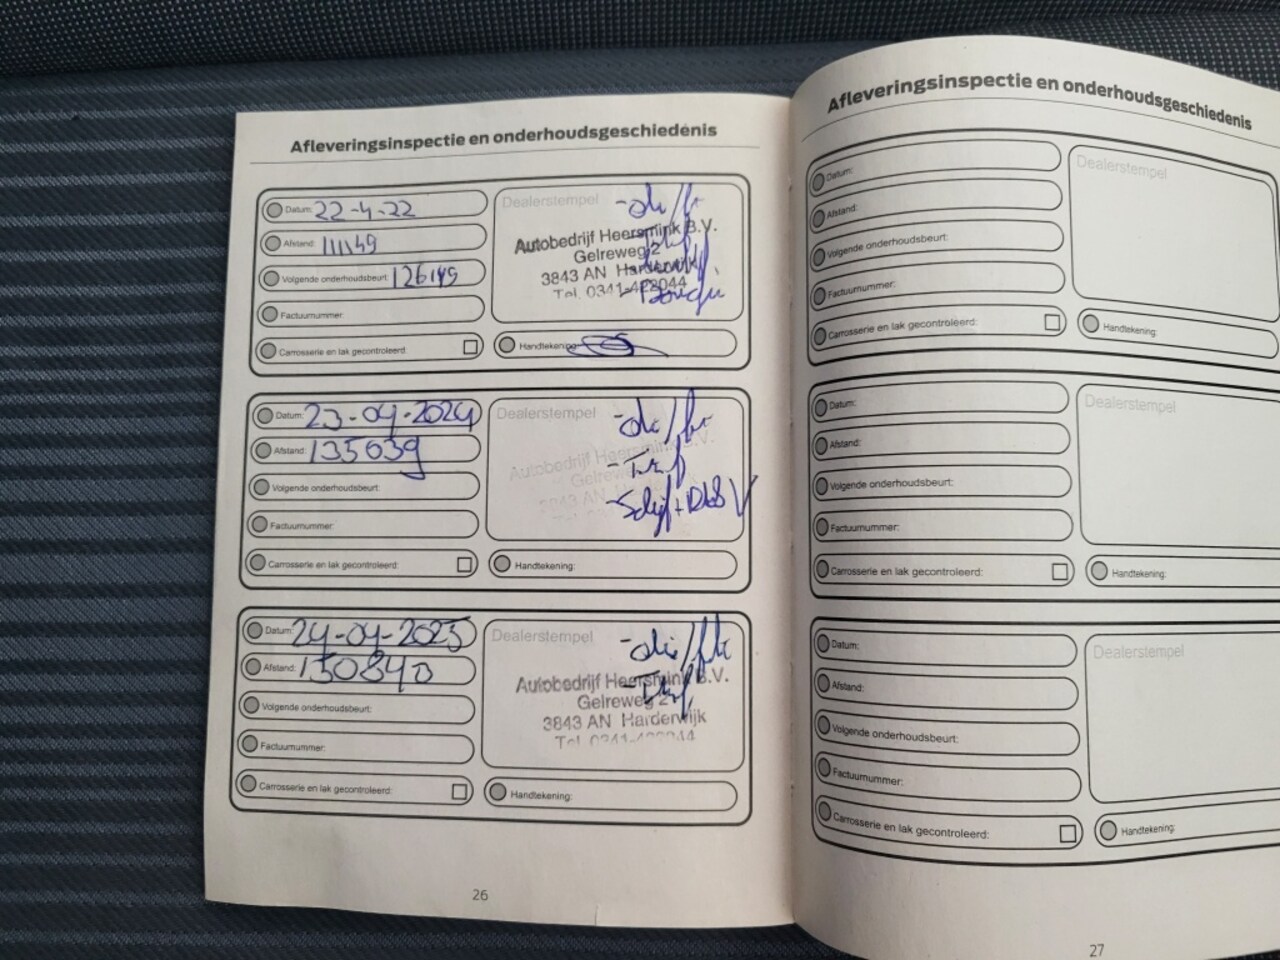 Afleveringsinspectie en onderhoudsgeschiedenis
Datum: 22-4-22
Afstand: 111149
Volgende onderhoudsbeurt: 126149
Factuurnummer:
Carrosserie en lak gecontroleerd:
Dealerstempel
Autobedrijf Heersmink B.V.
Gelreweg 2
3843 AN Harderwijk
Tel. 0341-422044
Handtekening:
Datum: 23-04-2024
Afstand: 135639
Volgende onderhoudsbeurt:
Factuurnummer:
Carrosserie en lak gecontroleerd:
Dealerstempel
Autobedrijf Heersmink B.V.
Gelreweg
3843 AN Harderwijk
Handtekening:
Datum: 24-04-2025
Afstand: 150840
Volgende onderhoudsbeurt:
Factuurnummer:
Carrosserie en lak gecontroleerd:
Dealerstempel
Autobedrijf Heersmink B.V.
Gelreweg 2
3843 AN Harderwijk
Tel. 0341-422044
Handtekening:
26
Afleveringsinspectie en onderhoudsgeschiedenis
Datum:
Afstand:
Volgende onderhoudsbeurt:
Factuurnummer:
Carrosserie en lak gecontroleerd:
Dealerstempel
Handtekening:
Datum:
Afstand:
Volgende onderhoudsbeurt:
Factuurnummer:
Carrosserie en lak gecontroleerd:
Dealerstempel
Handtekening:
Datum:
Afstand:
Volgende onderhoudsbeurt:
Factuurnummer:
Carrosserie en lak gecontroleerd:
Dealerstempel
Handtekening:
27